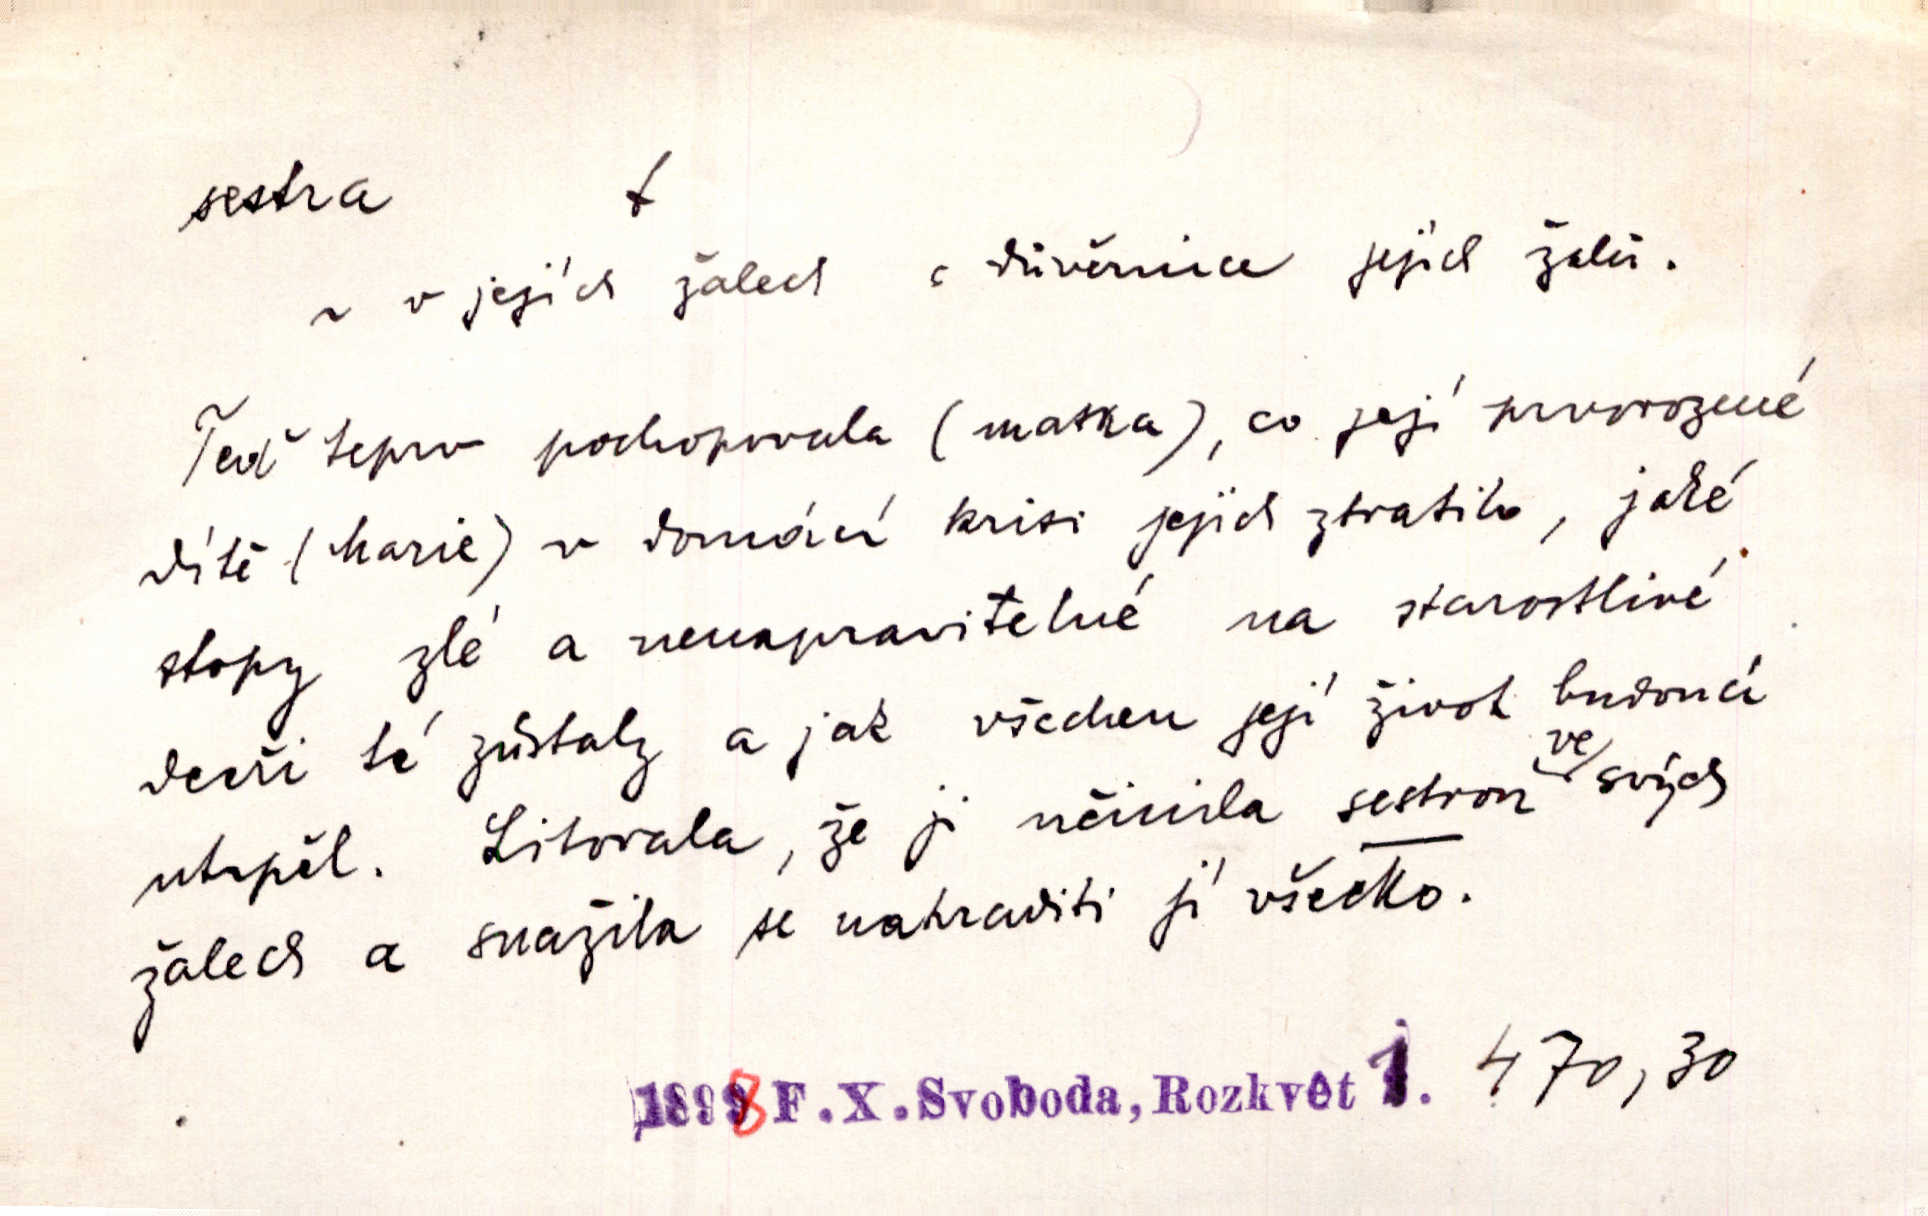 sestra t
~ v jejích žalech : důvěrnice jejích žalů.
Teď teprv pochopovala (matka), co její prvorozené
dítě (Marie) v domácí krisi jejich ztratilo, jaké
stopy zlé a nenapravitelné na starostlivé
dceři té zůstaly a jak všechen její život budoucí
utrpěl. Litovala, že ji učinila sestrou ve svých
žalech a snažila se nahraditi jí všecko.
1898 F. X. Svoboda, Rozkvět 1. 470, 30